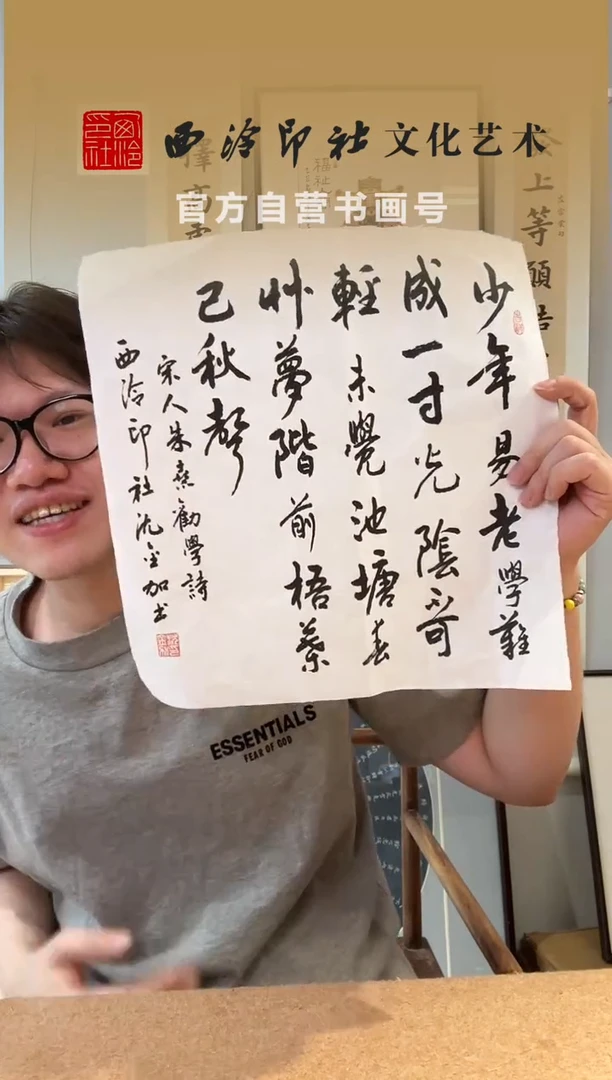 西泠印社
西泠印社 文化艺术
官方自营书画号
上等願
少年易老學難
成一寸光陰不可
輕未覺池塘春
艸夢階前梧葉
已秋聲
宋人朱熹勸學詩
西泠印社沈加书
ESSENTIALS
FEAR OF GOD